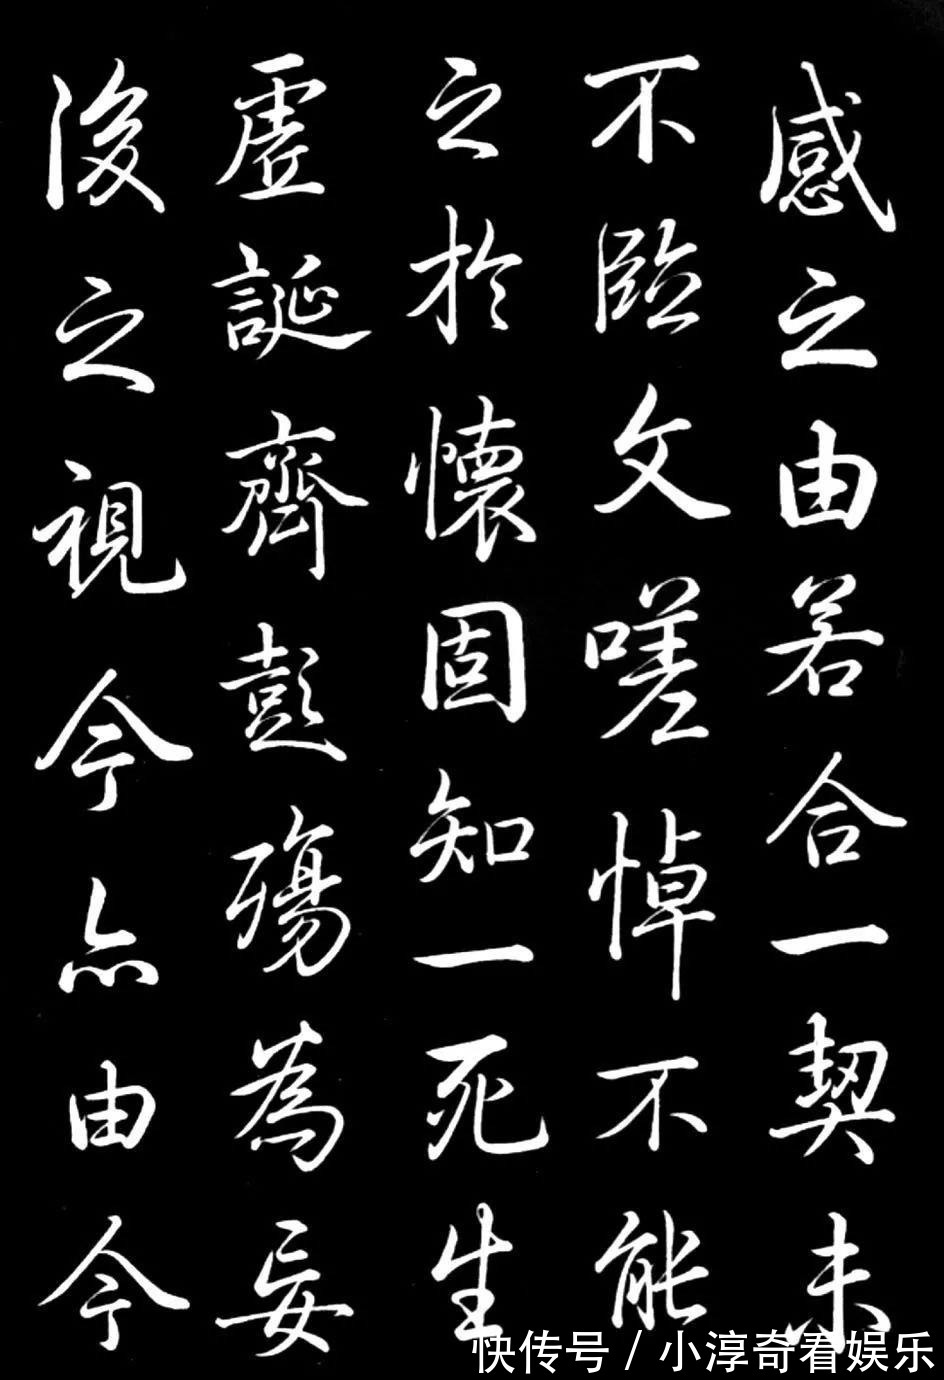 感之由若合一契未
不臨文嗟悼不能
之於懷固知一死生
虛誕齊彭殤為妄
後之視今亦由今
快传号/小淳奇看娱乐